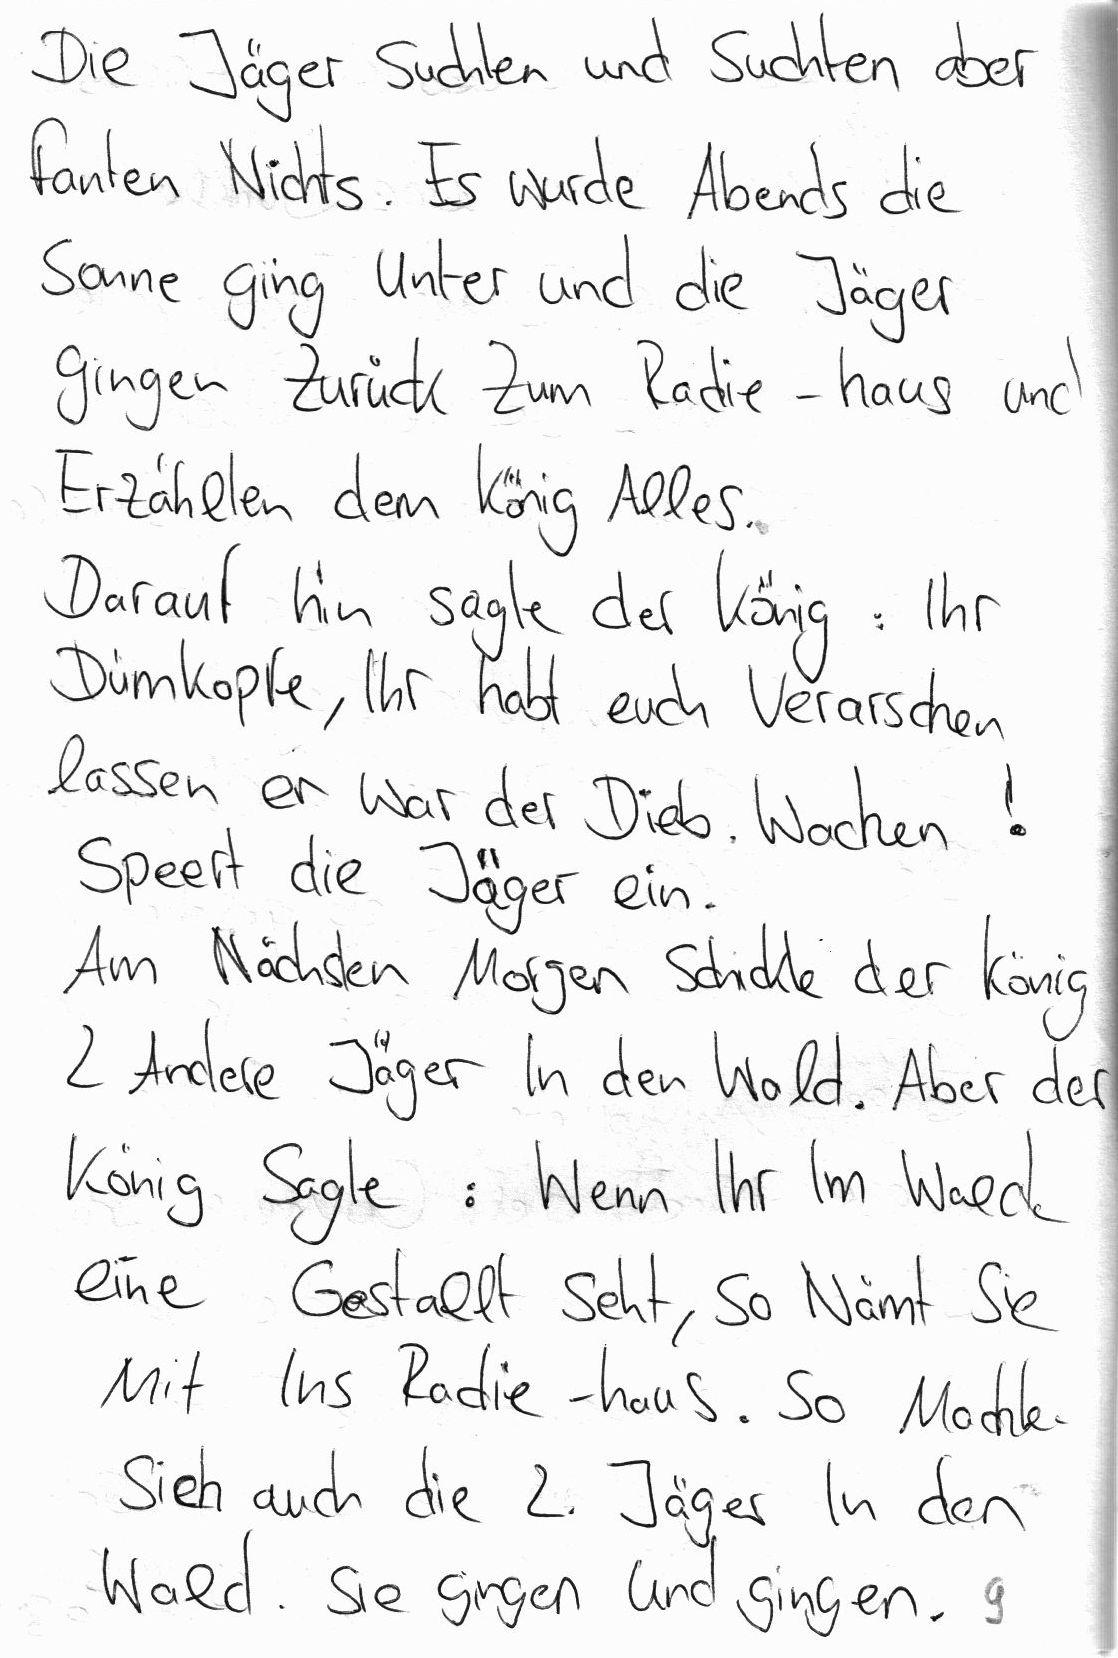 Die Jäger Suchten und Suchten aber
fanten Nichts. Es wurde Abends die
Sonne ging Unter und die Jäger
gingen Zurück Zum Radie - haus und
Erzählten dem König Alles.
Darauf hin sagte der König : Ihr
Dümkopfe, Ihr habt euch Verarschen
lassen er War der Dieb. Wachen !
Speert die Jäger ein.
Am Nächsten Morgen Schickte der König
2 Andere Jäger In den Wald. Aber der
König Sagte : Wenn Ihr Im Wald
eine Gestallt Seht, So Nämt Sie
Mit Ins Radie -haus. So Machte
Sich auch die 2. Jäger In den
Wald. Sie gingen Und gingen. 9